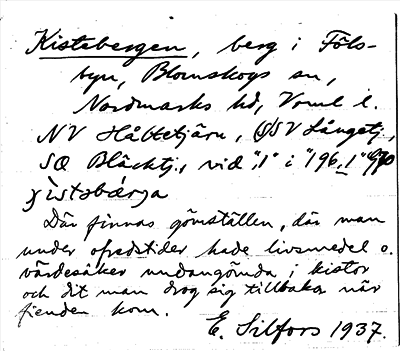 Kistebergen, berg i Föls-
byn, Blomskogs sn,
Nordmarks hd, Vrml l.
NV Håltetjärn, SSV Långetj.,
SO Bläcktj., vid "1" i "196,1"
Där finnas gömställen, där man
under ofredstider hade livsmedel o.
värdesaker undangömda i kistor
och dit man drog sig tillbaka när
fienden kom.
E. Silfors 1937.